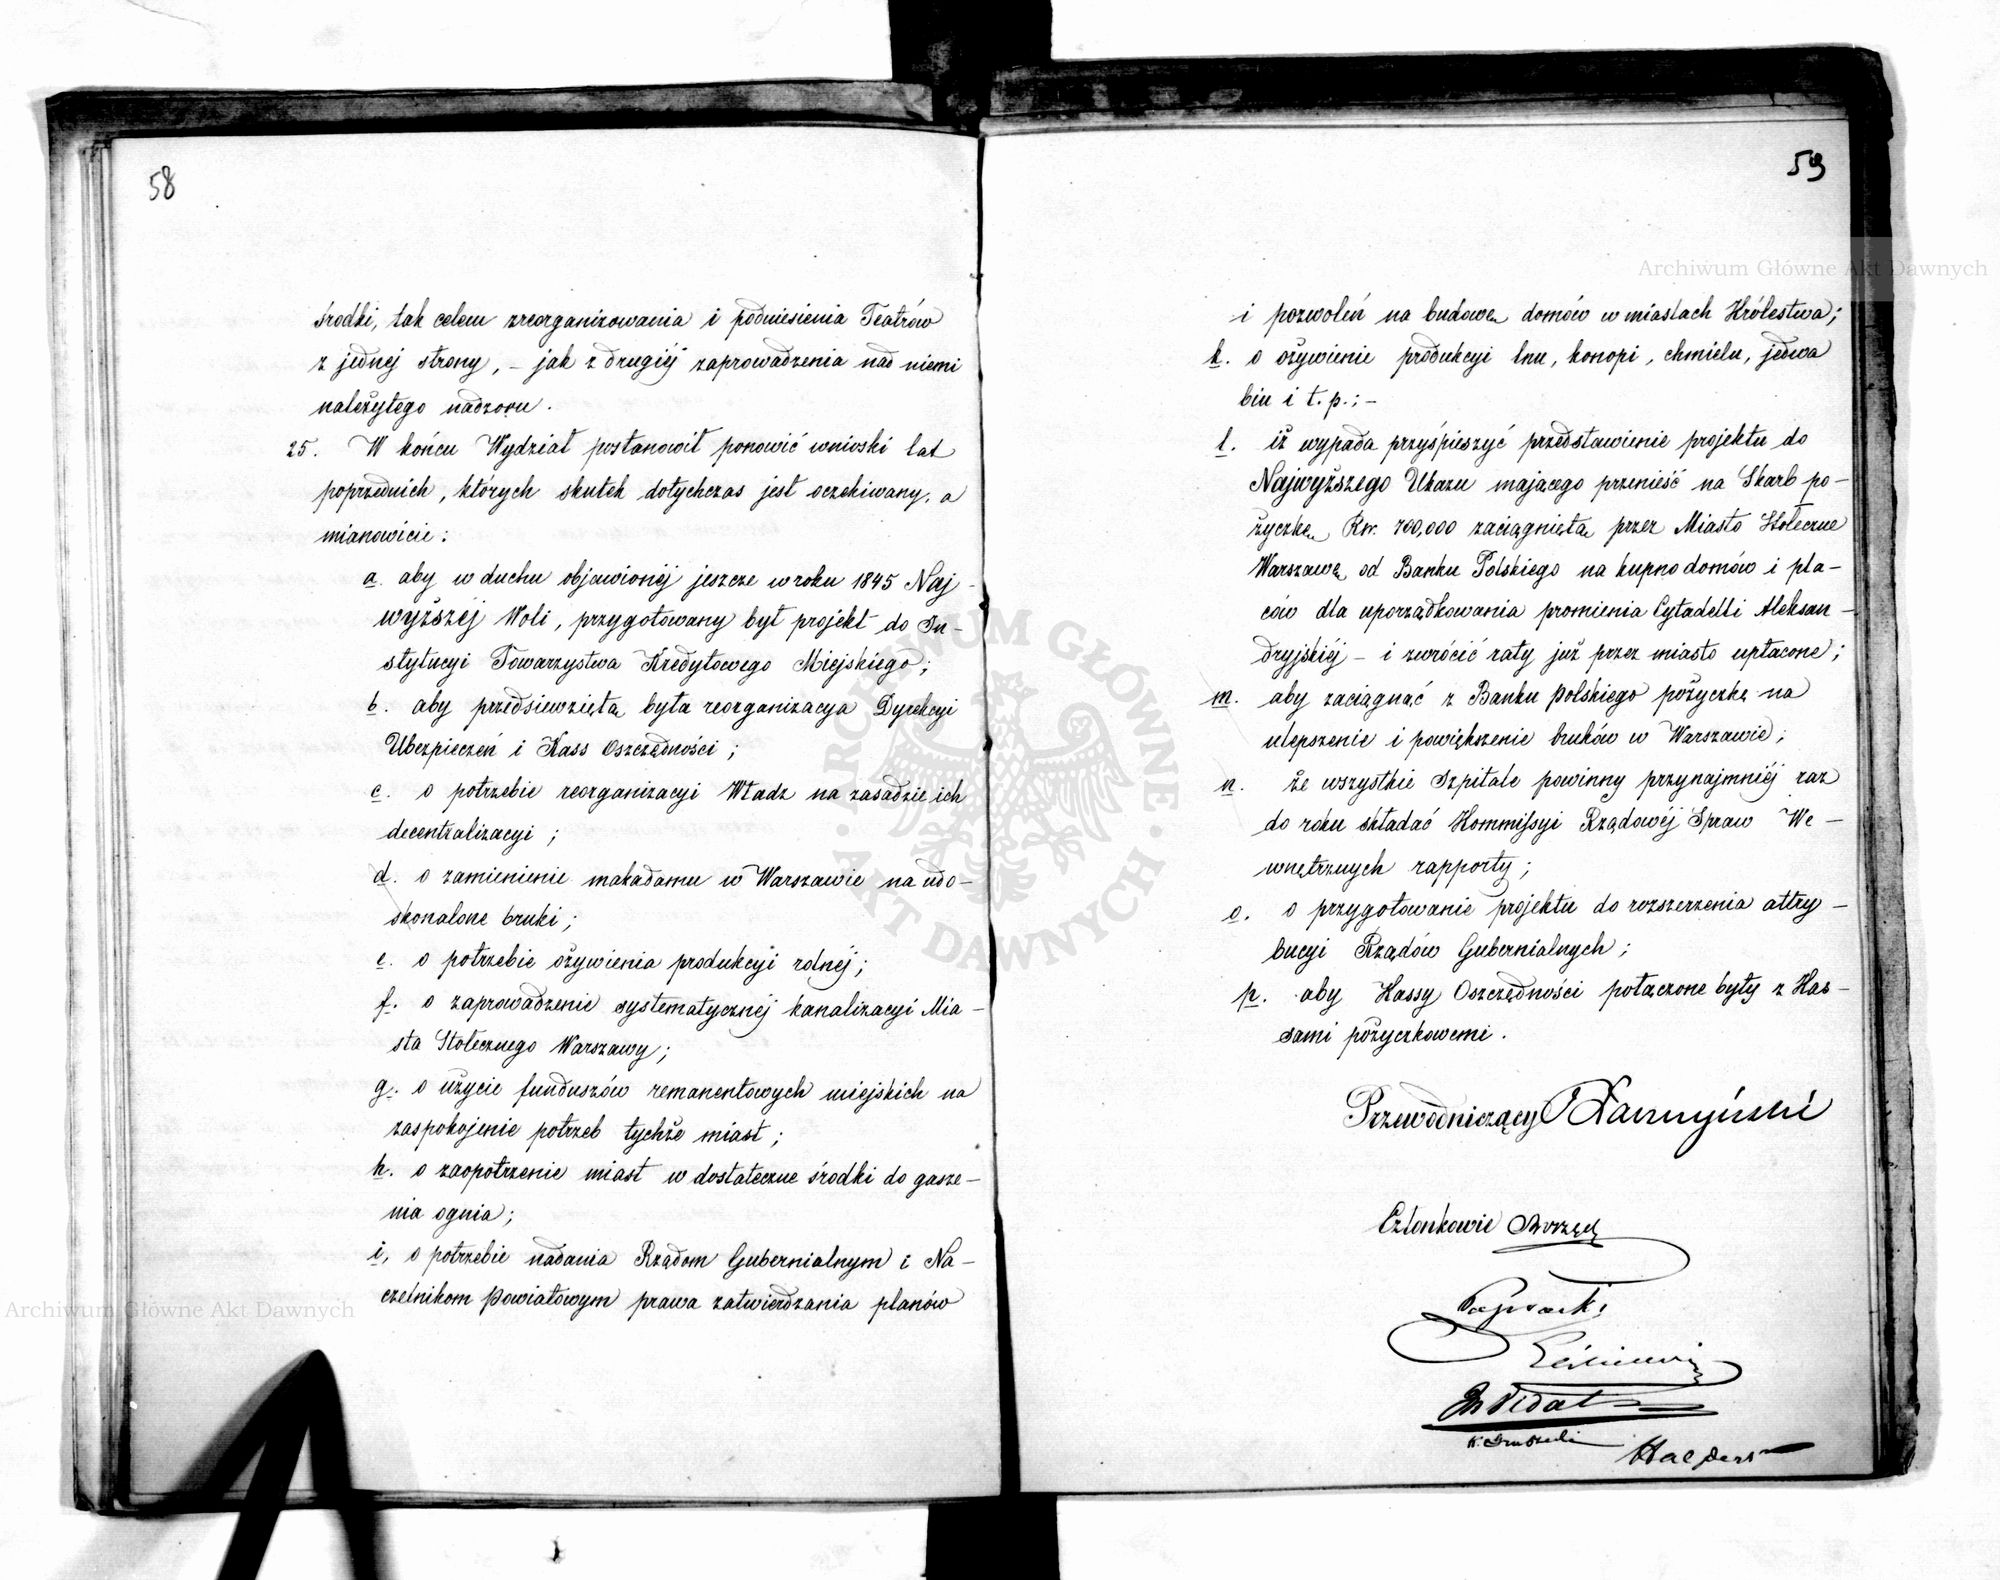 58
środki, tak celem zreorganizowania i podniesienia Teatrów
z jednej strony, – jak z drugiéj zaprowadzenia nad niemi
należytego nadzoru.
25. W końcu Wydział postanowił ponowić wnioski lat
poprzednich, których skutek dotychczas jest oczekiwany, a
mianowicie:
a. aby w duchu objawionéj jeszcze w roku 1845 Naj-
wyższéj Woli, przygotowany był projekt do In-
stytucyi Towarzystwa Kredytowego Miejskiego;
b. aby przedsięwziętą była reorganizacya Dyrekcyi
Ubezpieczeń i Kass Oszczędności;
c. o potrzebie reorganizacyi Władz na zasadzie ich
decentralizacyi;
d. o zamienienie makadamu w Warszawie na udo-
skonalone bruki;
e. o potrzebie ożywienia produkcyi rolnéj;
f. o zaprowadzenie systematycznéj kanalizacyi Mia-
sta Stołecznego Warszawy;
g. o użycie funduszów remanentowych miejskich na
zaspokojenie potrzeb tychże miast;
h. o zaopatrzenie miast w dostateczne środki do gasze-
nia ognia;
i. o potrzebie nadania Rządom Gubernialnym i Na-
czelnikom Powiatowym prawa zatwierdzania planów
59
i pozwoleń na budowę domów w miastach Królestwa;
k. o ożywienie produkcyi lnu, konopi, chmielu, jedwa
biu i t. p.; –
l. iż wypada przyśpieszyć przedstawienie projektu do
Najwyższego Ukazu mającego przenieść na Skarb po-
życzkę Rsr. 700,000 zaciągniętą przez Miasto Stołeczne
Warszawę od Banku Polskiego na kupno domów i pla-
ców dla uporządkowania promienia Cytadelli Aleksan-
dryjskiéj – i zwrócić raty już przez miasto upłacone;
m. aby zaciągnąć z Banku Polskiego pożyczkę na
ulepszenie i powiększenie bruków w Warszawie;
n. że wszystkie Szpitale powinny przynajmniéj raz
do roku składać Kommissyi Rządowéj Spraw We-
wnętrznych rapporty;
o. o przygotowanie projektu do rozszerzenia attry-
bucyi Rządów Gubernialnych;
p. aby Kassy Oszczędności połączone były z Kas-
sami pożyczkowemi.
Przewodniczący
Członkowie
Halpert
Archiwum Główne Akt Dawnych
Archiwum Główne Akt Dawnych
ARCHIWUM GŁÓWNE AKT DAWNYCH